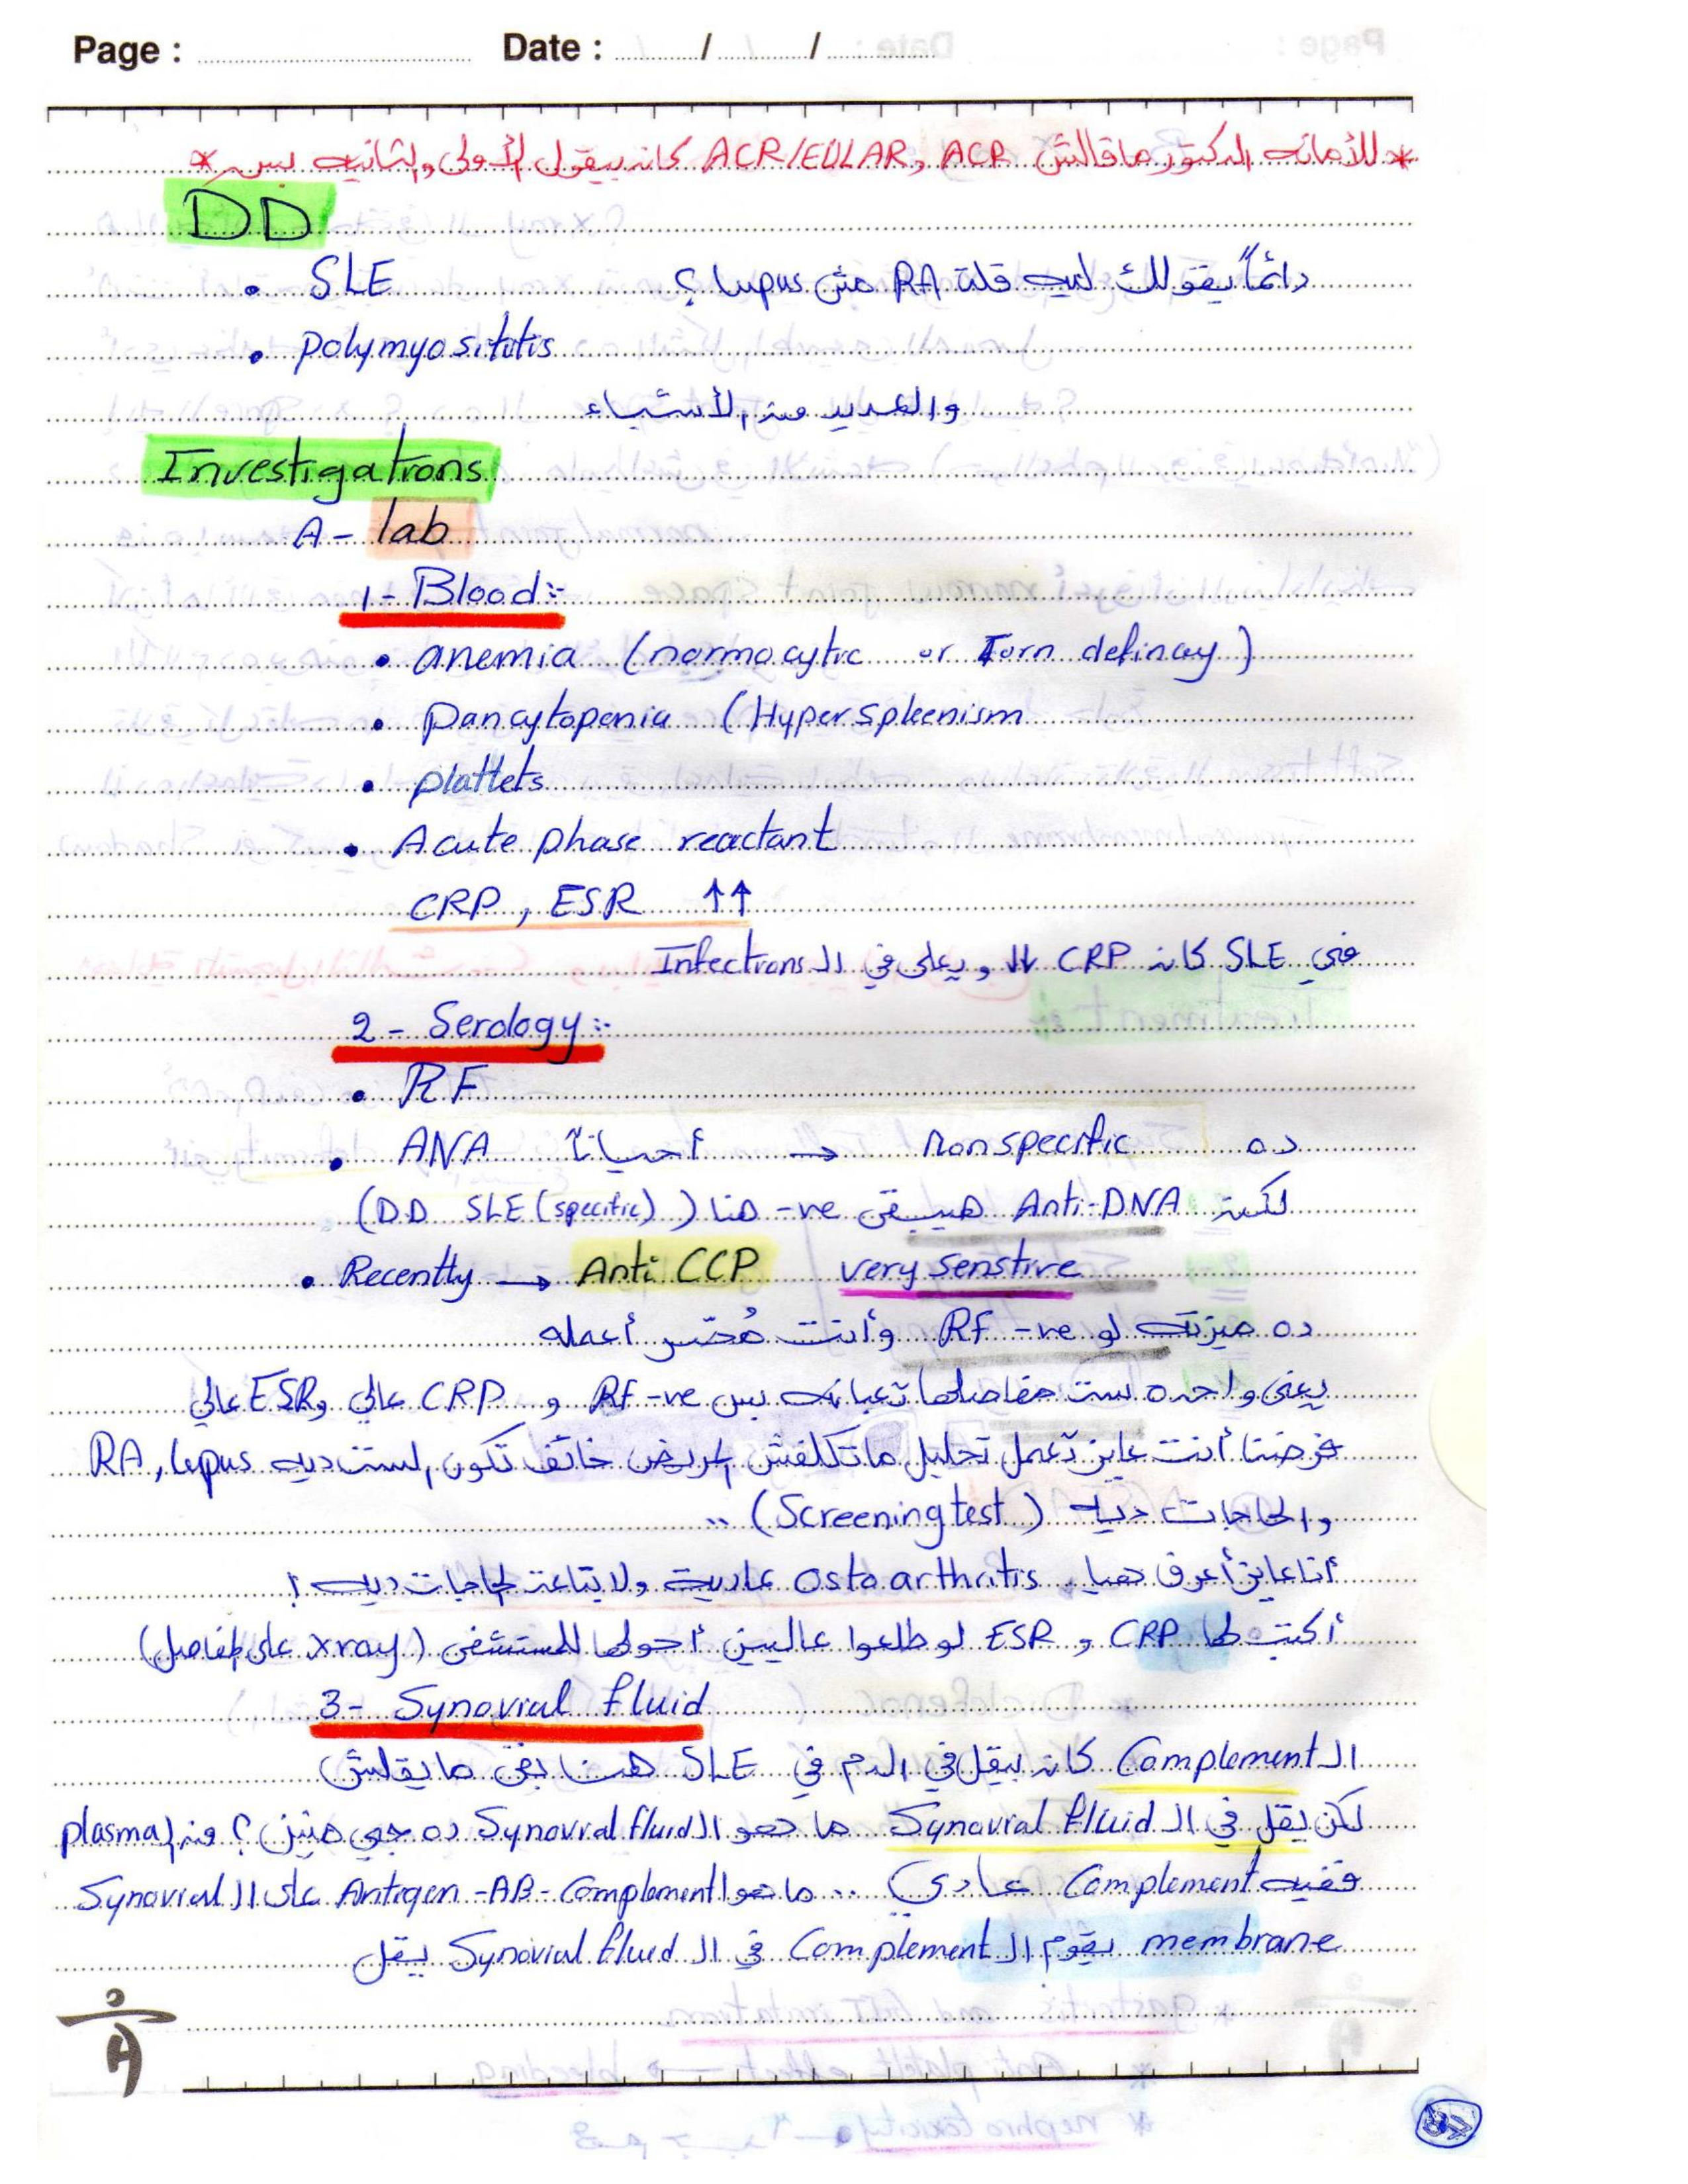 Page : Date : / /
* للأمانه الدكتور ماقالش ACR و ACR/EULAR كان بيقول الأولى والثانيه بس *
DD
• SLE دائماً يقولك ليه قلت RA مش lupus ؟
• polymyositits
والعديد من الأشياء
Investigatrons
A- lab
1- Blood:-
• anemia (normocytic or Iorn defincy)
• pancytopenia (Hypersplenism
• plattets
• Acute phase reactant
CRP, ESR ↑↑
في SLE كان CRP ويعلى في ال Infectrons
2- Serology:-
• RF
• ANA أحياناً → nonspecific ده
لكن Anti-DNA هيبقى -ve هنا (DD SLE (specific))
• Recently → Anti CCP very senstive
ده ميزته لو RF -ve وأنت مُصر أعمله
يعنى واحده ست مفاصلها تعبانه بس RF -ve و CRP عالي و ESR عالي
فرضنا أنت عايز تعمل تحليل ماتكلفش المريض خائف تكون الست ديه RA, lupus
والحاجات ديه (Screening test) ..
أنا عايز أعرف هيا osto arthritis عاديه ولا بتاعت الحاجات ديه !
أكتب لها CRP و ESR لو طلعوا عاليين أحولها للمستشفى (xray على المفاصل)
3- Synovial fluid
ال Complement كان بيقل في الدم في SLE هنا بقى مايقلش
لكن يقل في ال Synovial fluid ما هو ال Synovial fluid ده جي منين ؟ من ال plasma
ففيه Complement عادي .. ما هو ال Antigen -AB- Complement على ال Synovial
membrane يقوم ال Complement في ال Synovial fluid يقل
87